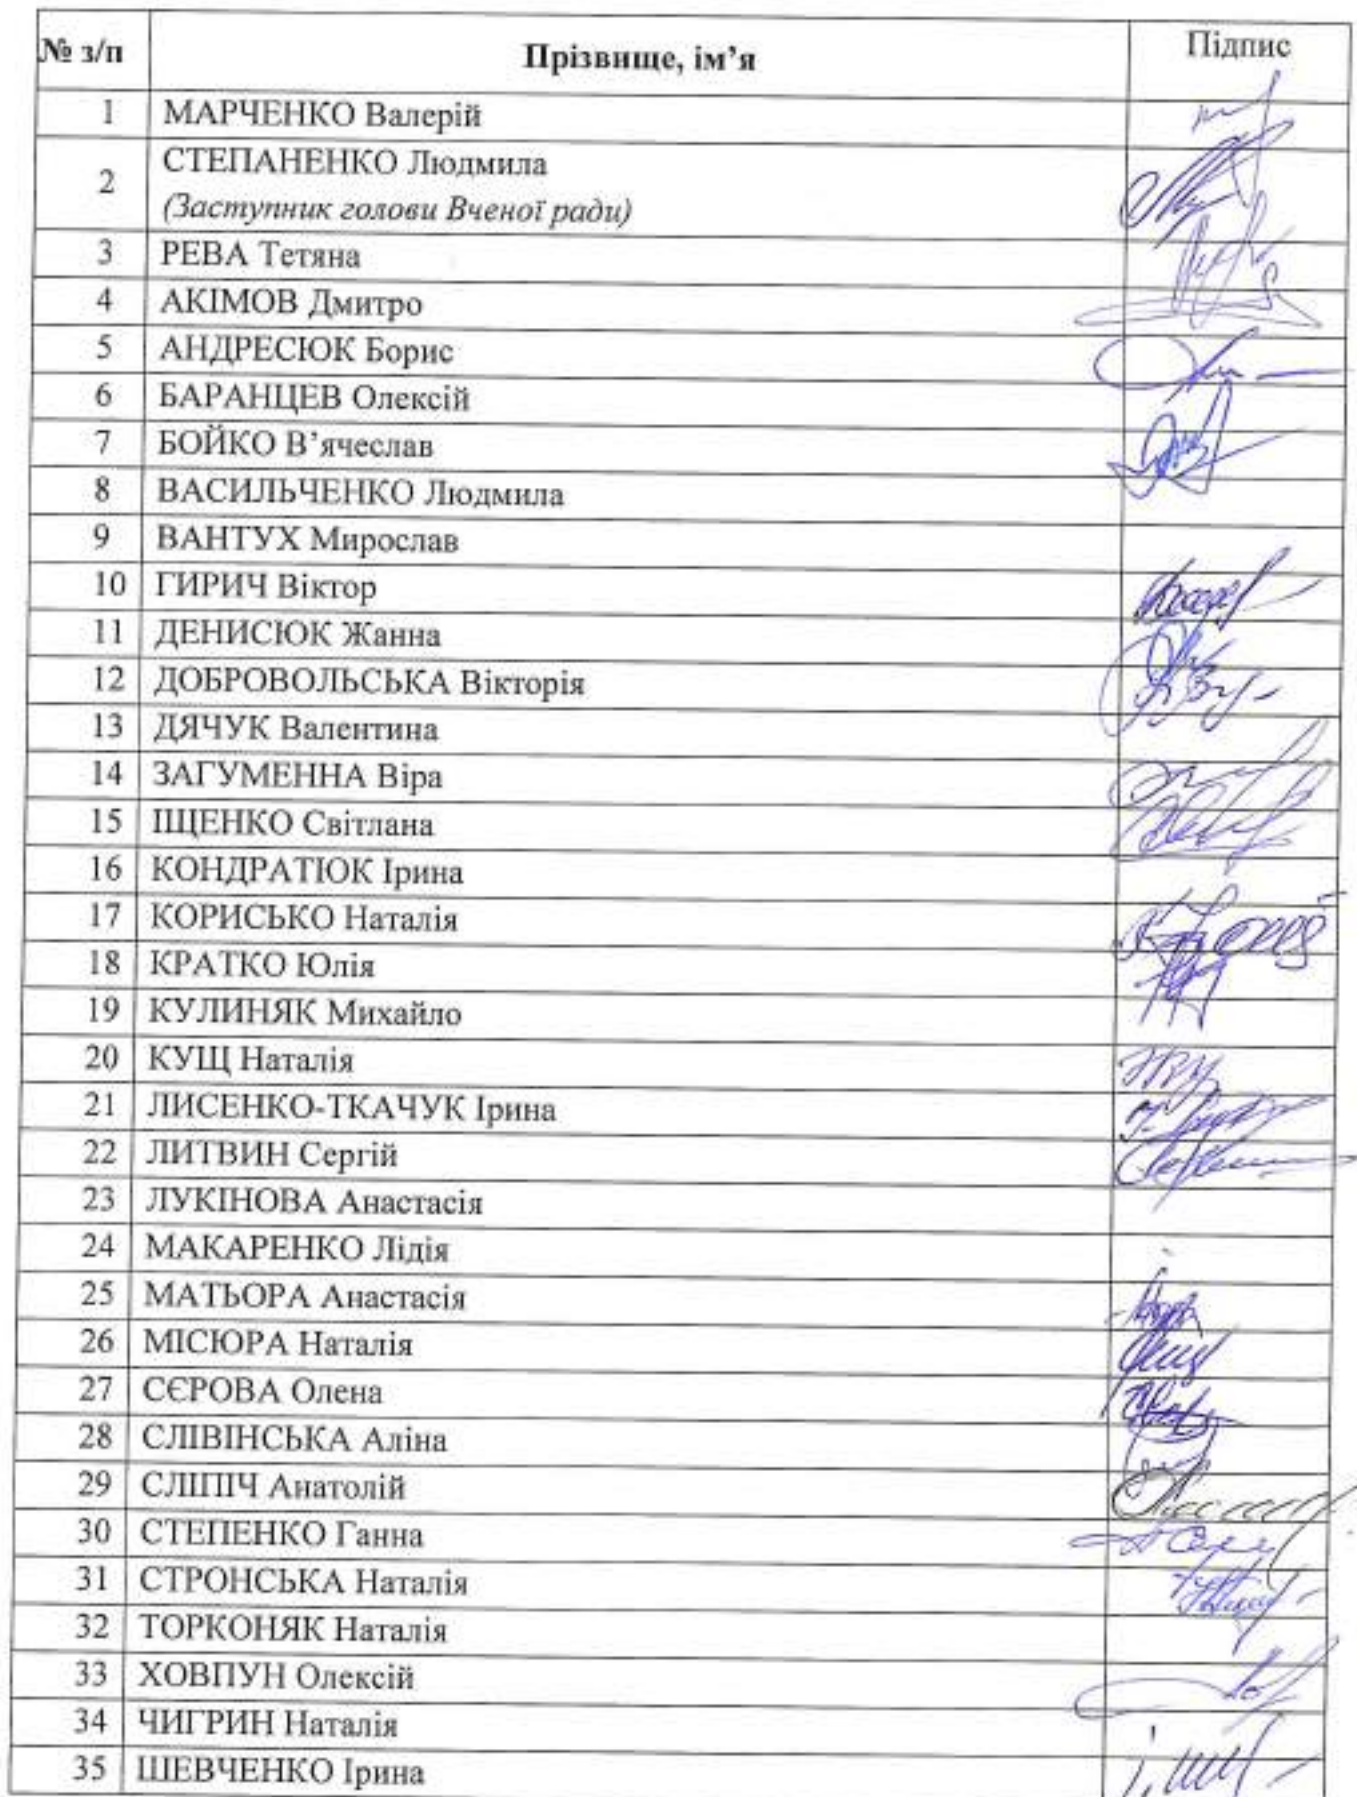 № з/п Прізвище, ім’я Підпис
1 МАРЧЕНКО Валерій
2 СТЕПАНЕНКО Людмила
(Заступник голови Вченої ради)
3 РЕВА Тетяна
4 АКІМОВ Дмитро
5 АНДРЕСЮК Борис
6 БАРАНЦЕВ Олексій
7 БОЙКО В’ячеслав
8 ВАСИЛЬЧЕНКО Людмила
9 ВАНТУХ Мирослав
10 ГИРИЧ Віктор
11 ДЕНИСЮК Жанна
12 ДОБРОВОЛЬСЬКА Вікторія
13 ДЯЧУК Валентина
14 ЗАГУМЕННА Віра
15 ІЩЕНКО Світлана
16 КОНДРАТЮК Ірина
17 КОРИСЬКО Наталія
18 КРАТКО Юлія
19 КУЛИНЯК Михайло
20 КУЩ Наталія
21 ЛИСЕНКО-ТКАЧУК Ірина
22 ЛИТВИН Сергій
23 ЛУКІНОВА Анастасія
24 МАКАРЕНКО Лідія
25 МАТЬОРА Анастасія
26 МІСЮРА Наталія
27 СЄРОВА Олена
28 СЛІВІНСЬКА Аліна
29 СЛІПІЧ Анатолій
30 СТЕПЕНКО Ганна
31 СТРОНСЬКА Наталія
32 ТОРКОНЯК Наталія
33 ХОВПУН Олексій
34 ЧИГРИН Наталія
35 ШЕВЧЕНКО Ірина